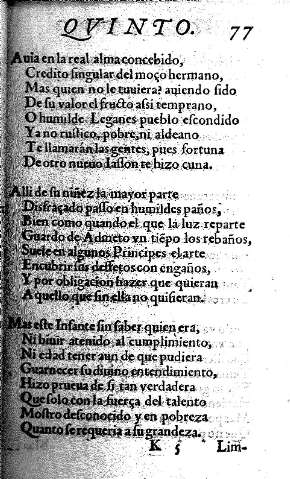 QVINTO. 77
Auia en la real alma concebido,
Credito singular del moço hermano,
Mas quien no le tuuiera? auiendo sido
De su valor el fructo assi temprano,
O humilde Leganes pueblo escondido
Ya no rustico, pobre, ni aldeano
Te llamarán las gentes, pues fortuna
De otro nueuo Iasson te hizo cuna.
Alli de su niñez la mayor parte
Disfraçado passo en humildes paños,
Bien como quando el que la luz reparte
Guardo de Admeto vn tiẽpo los rebaños,
Suele en algunos Principes el arte
Encubrir sus defetos con engaños,
Y por obligacion hazer que quieran
A quello que sin ella no quisieran.
Mas este Infante sin saber quien era,
Ni biuir atenido al cumplimiento,
Ni edad tener aun de que pudiera
Guarnecer su diuino entendimiento,
Hizo prueua de si tan verdadera
Que solo con la fuerça del talento
Mostro desconocido y en pobreza
Quanto se requeria a su grandeza.
K 5 Lim-